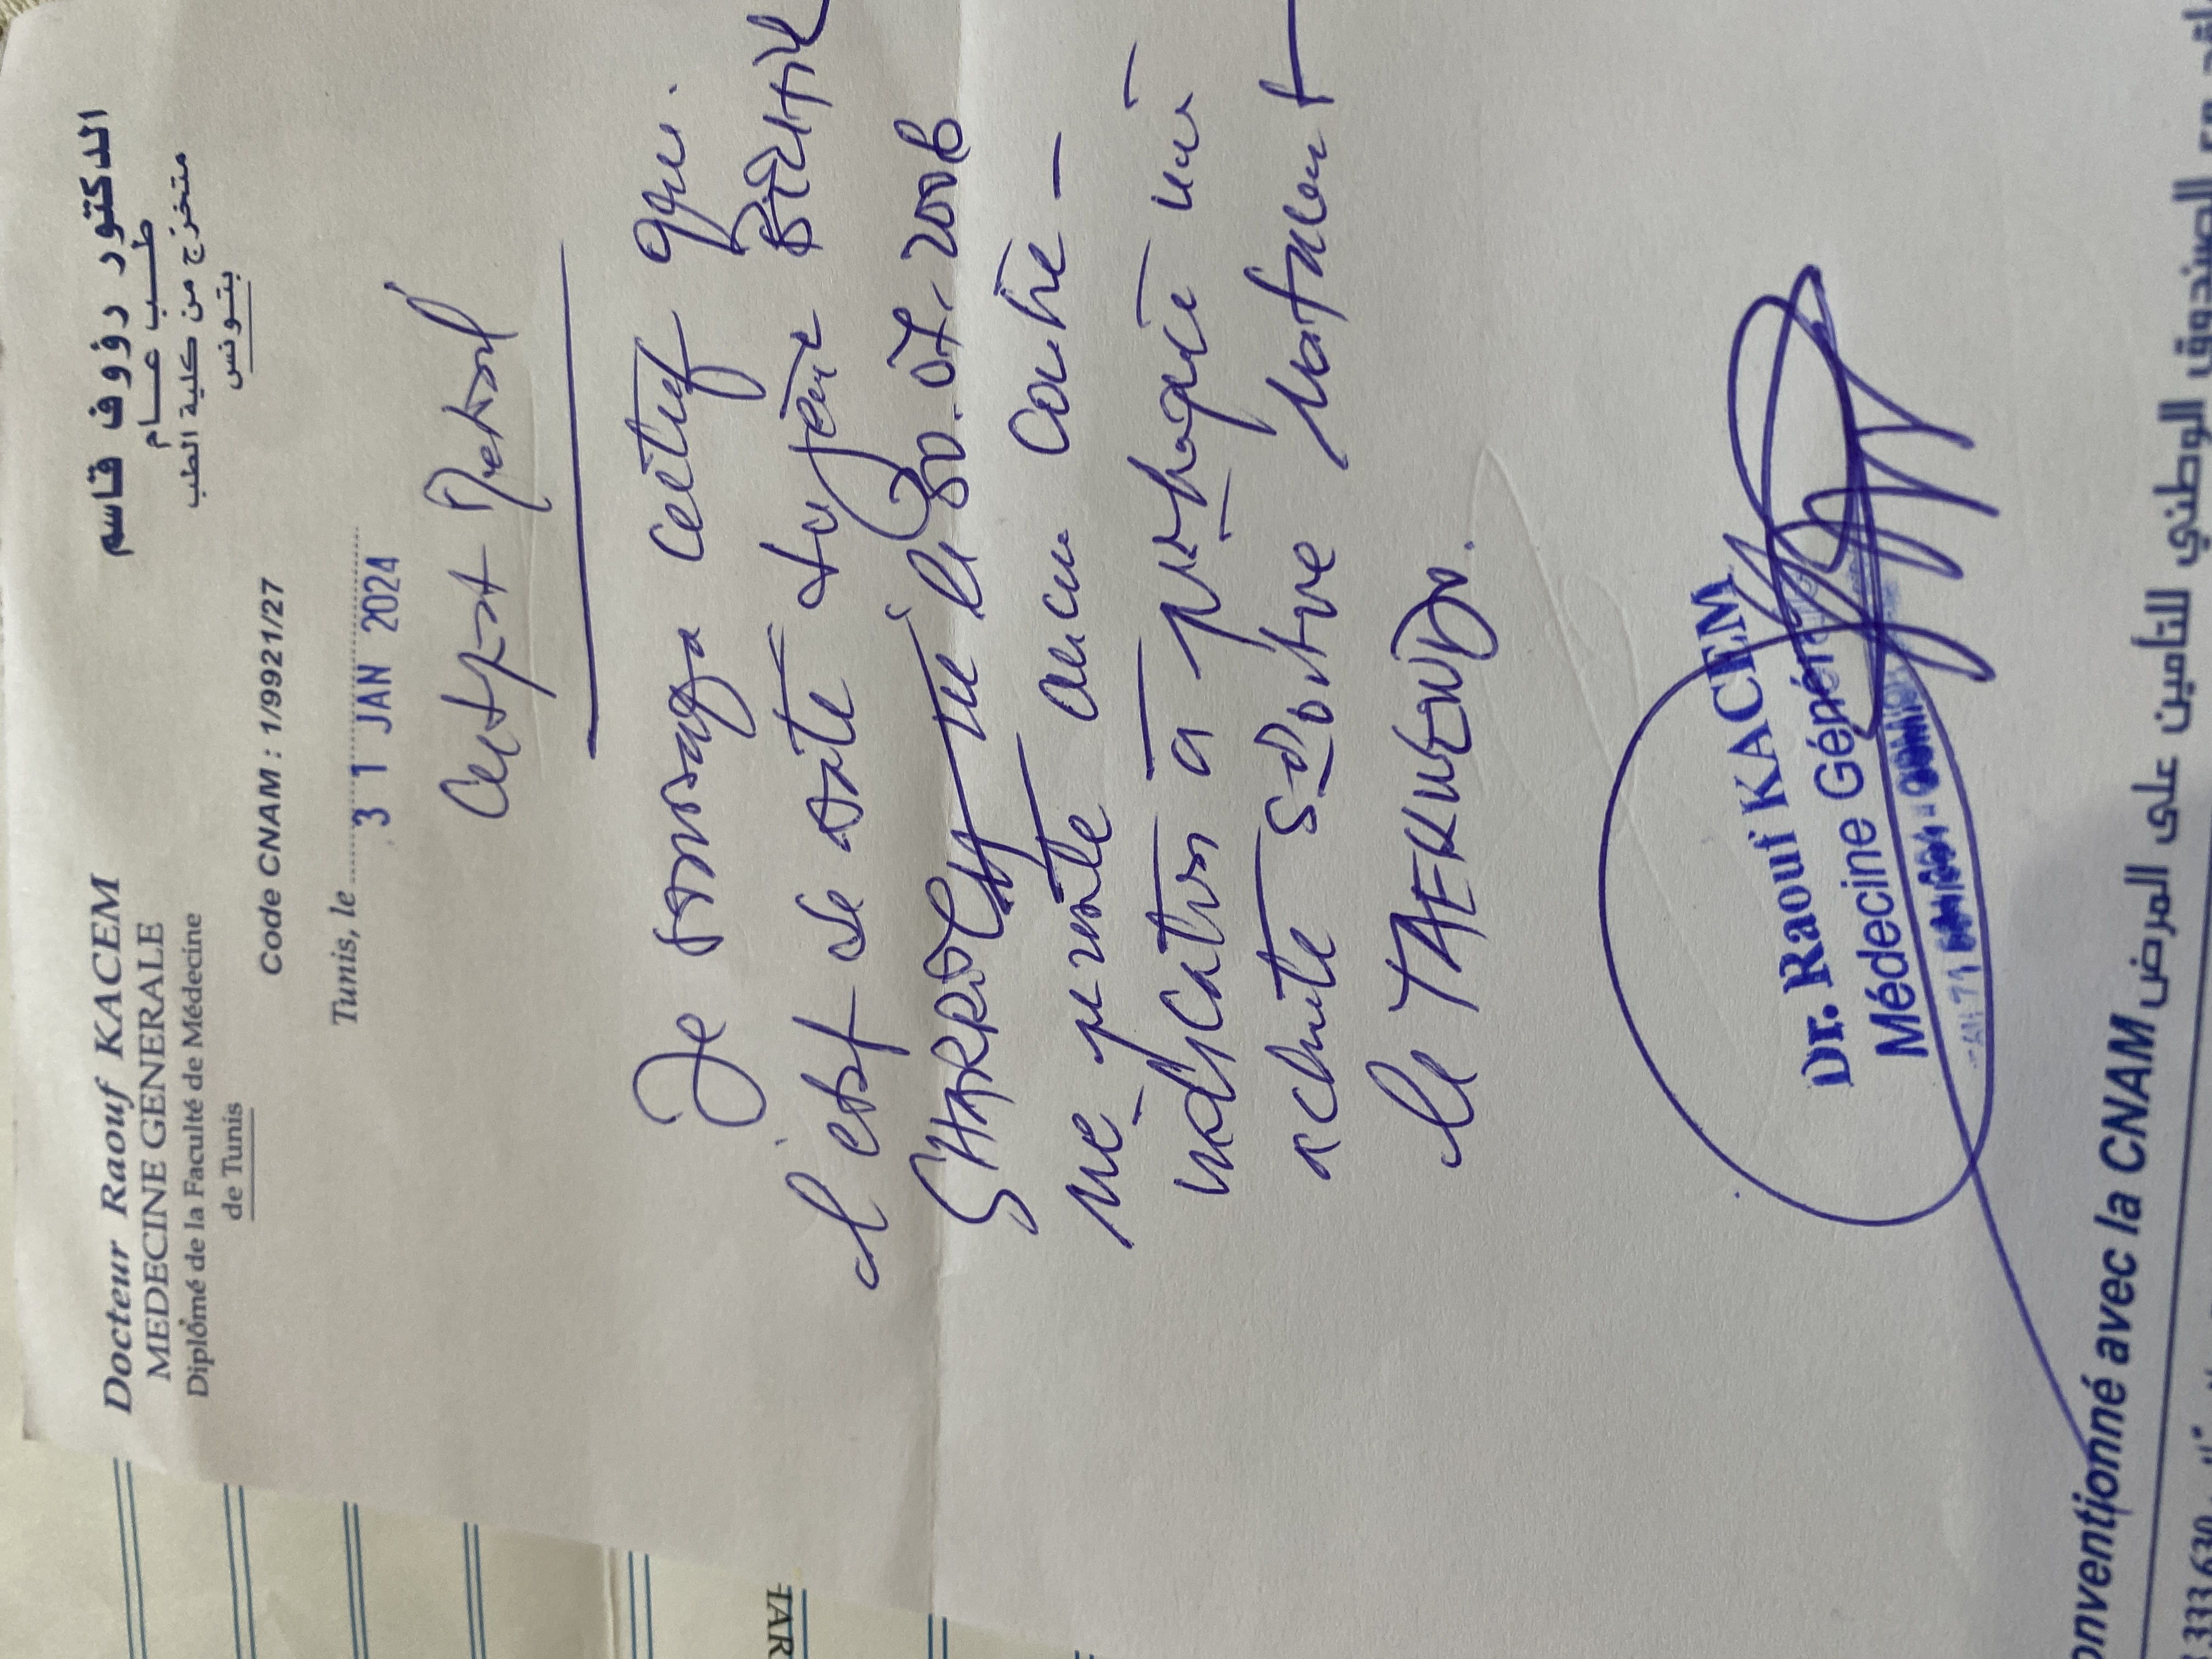 Docteur Raouf KACEM
MEDECINE GENERALE
Diplômé de la Faculté de Médecine
de Tunis
الدكتور رؤوف قاسم
طب عام
متخرج من كلية الطب
بتونس
Code CNAM : 1/99211/27
Tunis, le 31 JAN 2024
Certificat Medical
Je soussigné certifie que
l'état de santé
né le 30.07.2006
ne présente aucune contre-
indication à pratiquer une
activité sportive notament
le TAEKWENDO.
Dr. Raouf KACEM
Médecine Géné
onventionné avec la CNAM
الصندوق الوطني للتأمين على المرض
TAR